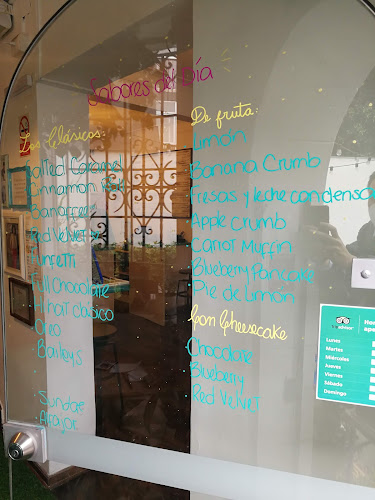 Sabores del Día
Los Clásicos:
Salted Caramel
Cinnamon
Red Velvet
Funfetti
Full Chocolate
clásico
Oreo
Baileys
Sundae
Alfajor
De fruta:
Limón
Banana Crumb
Fresas y leche condensa
Apple crumb
Carrot Muffin
Blueberry Pancake
Pie de Limón
Con Cheesecake
Chocolate
Blueberry
Red Velvet
Lunes
Martes
Miércoles
Jueves
Viernes
Sábado
Domingo